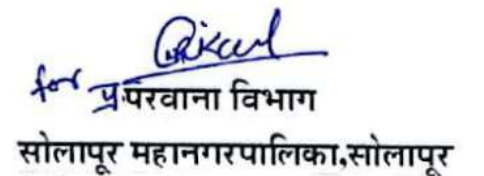 for प्र.परवाना विभाग
सोलापूर महानगरपालिका,सोलापूर